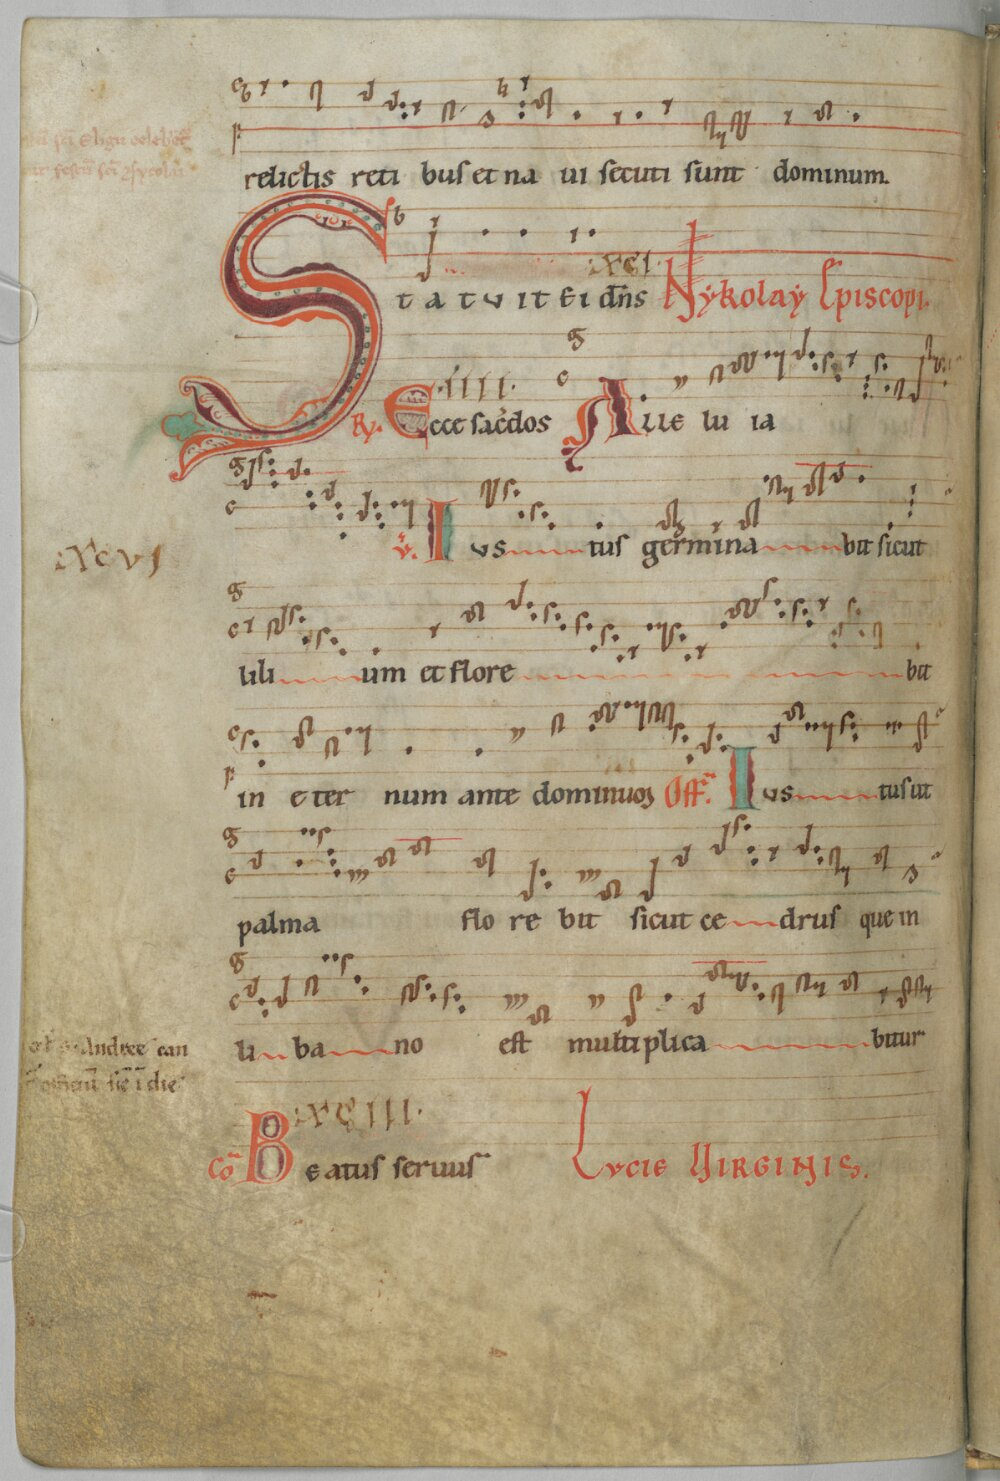 relictis reti bus et na ui secuti sunt dominum.
Statuit ei dns Nykolay Episcopi.
Ry. Ecce sacdos Alle lu ia
V. Ius tus germina bit sicut
:XCVI
lili um et flore bit
in eter num ante dominum Off. Ius tus ut
palma flo re bit sicut ce drus que in
li ba no est multiplica bitur
Andree can
Co Beatus seruus Lucie Virginis.